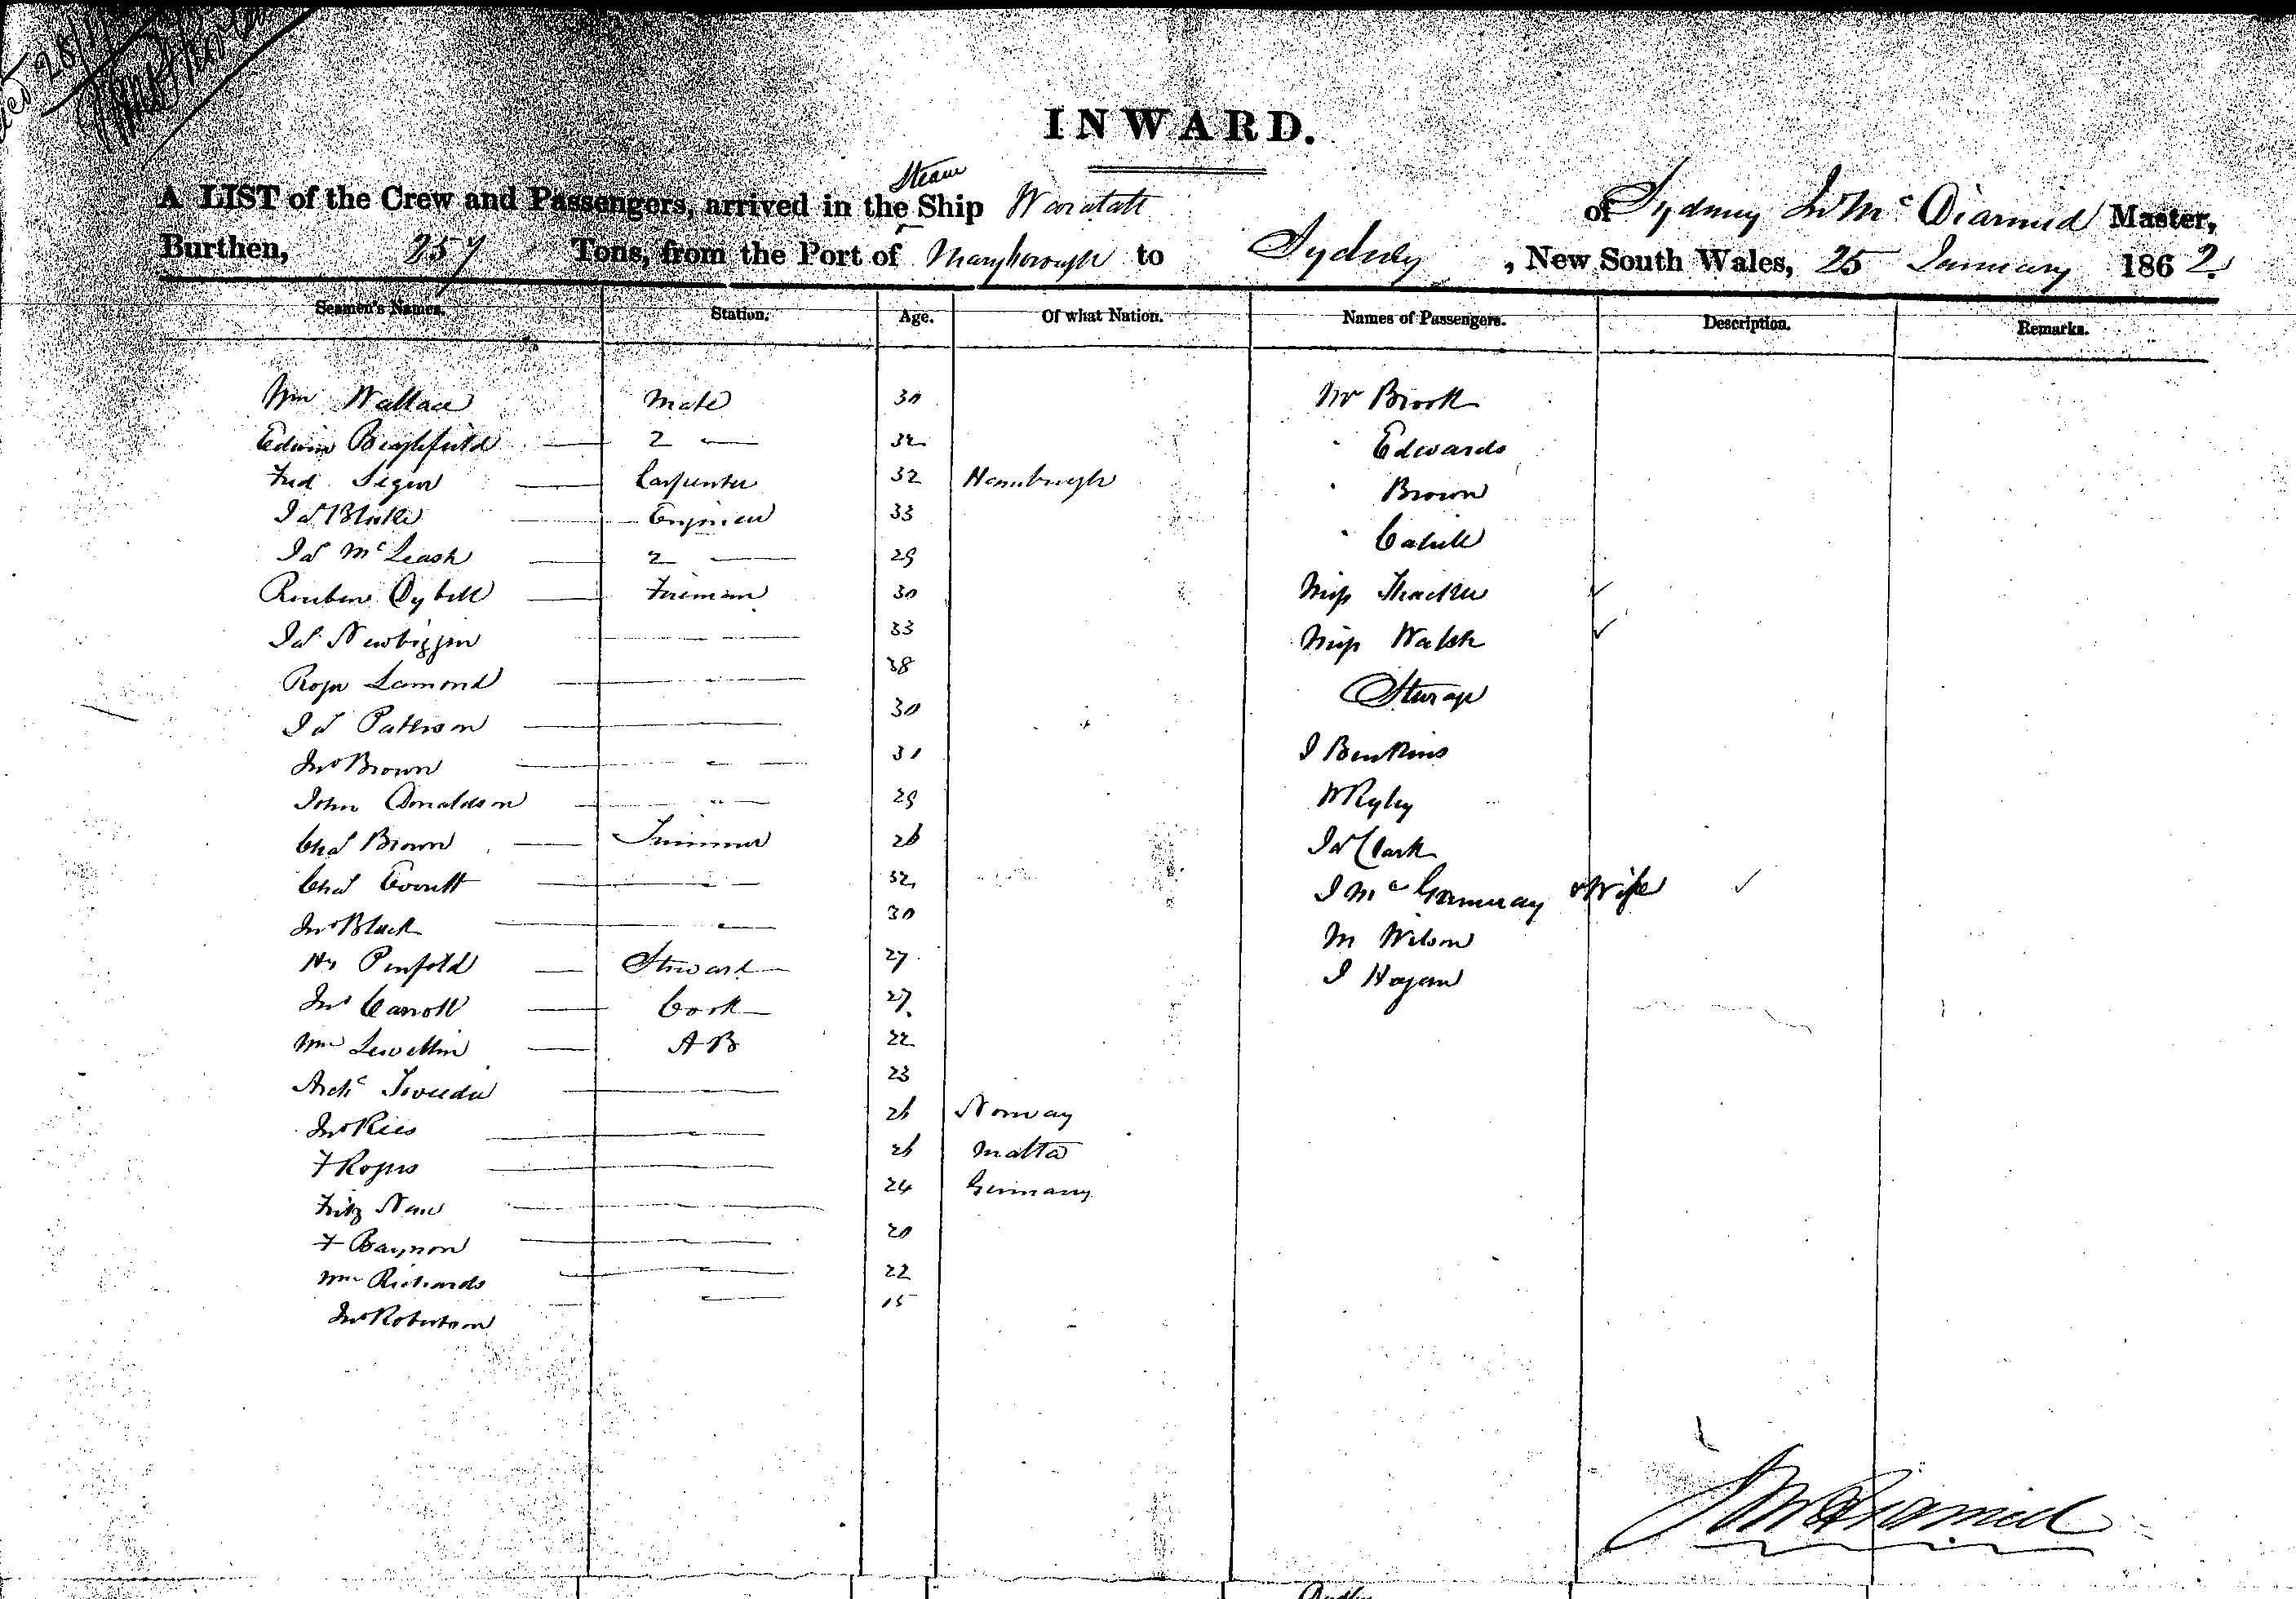 INWARD.
Steam
A LIST of the Crew and Passengers, arrived in the Ship Waratah of Sydney Jno McDiarmid Master,
Burthen, 257 Tons, from the Port of Maryborough to Sydney, New South Wales, 25 January 1862.
Seamen's Names. Station. Age. Of what Nation. Names of Passengers. Description. Remarks.
Wm Wallace mate 30 Mr Brook
Edwin 2 — 32 " Edwards
Fred Carpenter 32 Hamburgh " Brown
Jas Blake Engineer 33 " Cahill
Jas McLeash 2 — 29 Miss
Reuben Fireman 30 Miss Walsh
Jas Newbiggin — " — 33 Sturage
Roger Lamond — " — 38
Jas Patterson — 30 J Benkins
Jno Brown — " — 31 W Ryley
John Donaldson — " — 29 Jas Clark
Chas Brown Trimmer 26 J Mc & Wife
Chas Everitt — " — 32 M Wilson
Jno Black — " — 30 J Hogan
Hy Penfold Steward 27
Jno Carroll Cook 27
Wm Lewellin AB 22
Archd Tweedie — " — 23
Jno Rees — " — 26 Norway
F Rogers — " — 26 Malta
Fritz — " — 24 Germany
F Baynon — " — 20
Wm Richards — " — 22
Jno Robertson — " — 15
J McDiarmid